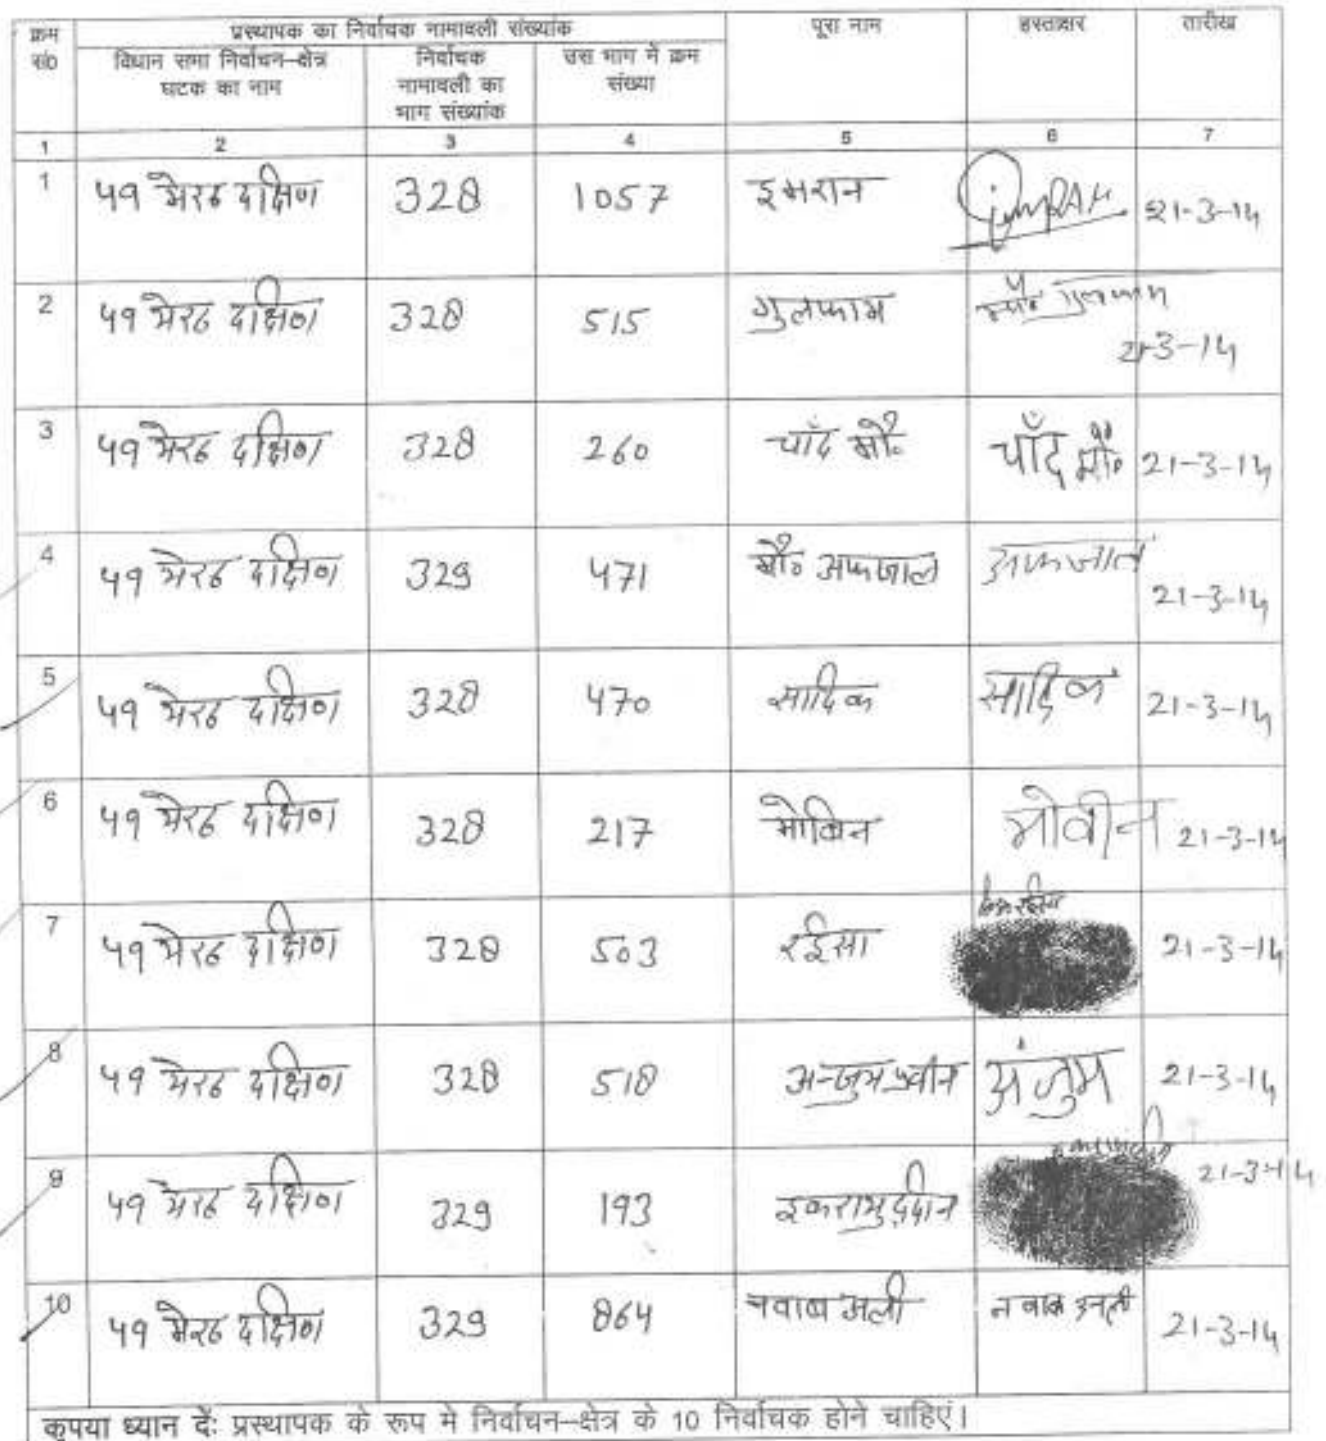 क्रम सं० प्रस्थापक का निर्वाचक नामावली संख्यांक पूरा नाम हस्ताक्षर तारीख
विधान सभा निर्वाचन–क्षेत्र घटक का नाम निर्वाचक नामावली का भाग संख्यांक उस भाग में क्रम संख्या
1 2 3 4 5 6 7
1 ५१ मेरठ दक्षिण 328 1057 इमरान imRAN 21-3-14
2 ५१ मेरठ दक्षिण 328 515 गुलफाम मौ० गुलफाम 21-3-14
3 ५१ मेरठ दक्षिण 328 260 चाँद मौ० चाँद मौ० 21-3-14
4 ५१ मेरठ दक्षिण 329 471 मौ० अफजाल अफजाल 21-3-14
5 ५१ मेरठ दक्षिण 328 470 सादिक सादिक 21-3-14
6 ५१ मेरठ दक्षिण 328 217 मोबिन मोवीन 21-3-14
7 ५१ मेरठ दक्षिण 328 503 रईसा रईसा 21-3-14
8 ५१ मेरठ दक्षिण 328 518 अन्जुम प्रवीन अंजुम 21-3-14
9 ५१ मेरठ दक्षिण 329 193 इकरामुद्दीन 21-3-14
10 ५१ मेरठ दक्षिण 329 864 नवाब अली नवाब अली 21-3-14
कृपया ध्यान दें: प्रस्थापक के रूप मे निर्वाचन–क्षेत्र के 10 निर्वाचक होने चाहिएं।